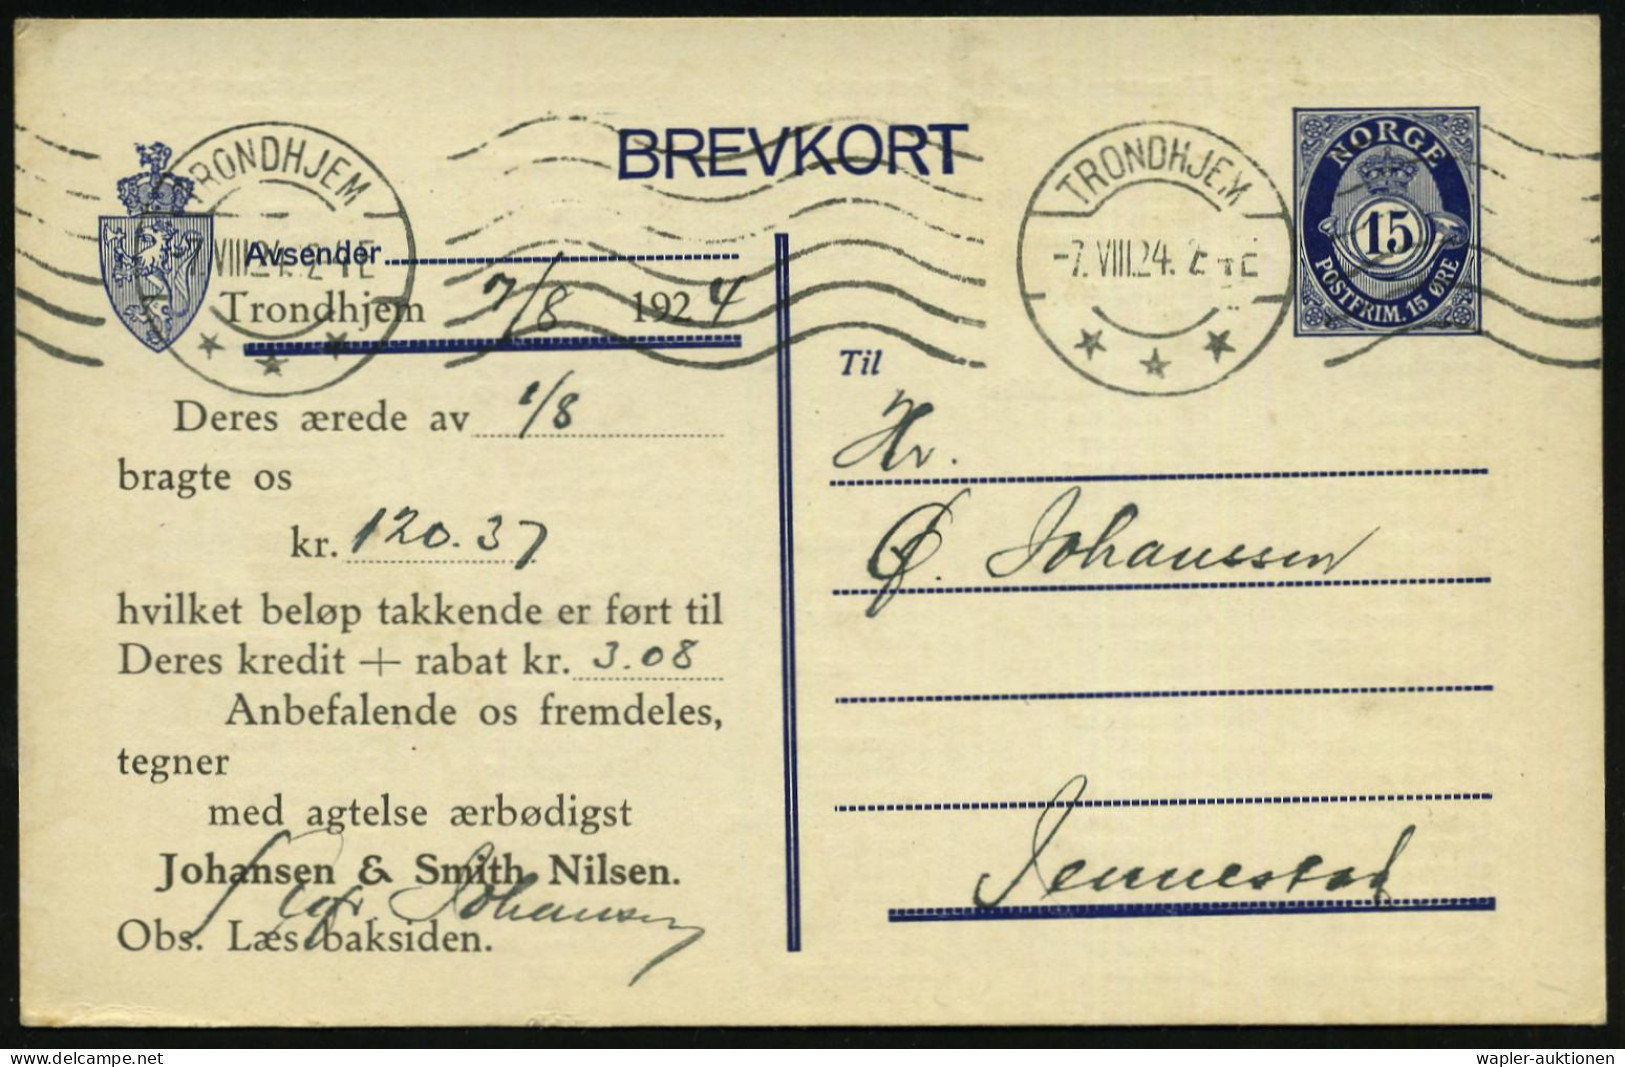 BREVKORT
TRONDHJEM
7.VIII.24.
TRONDHJEM
-7.VIII.24.
NORGE
15
POSTFRIM. 15 ØRE
Avsender
Trondhjem 7/8 1924
Deres ærede av 1/8
bragte os
kr. 120.37
hvilket beløp takkende er ført til
Deres kredit + rabat kr. 3.08
Anbefalende os fremdeles,
tegner
med agtelse ærbødigst
Johansen & Smith Nilsen.
Johansen
Obs. Læs baksiden.
Til
Hr.
Ø. Johanssen
Jennestad
delcampe.net
wapler-auktionen